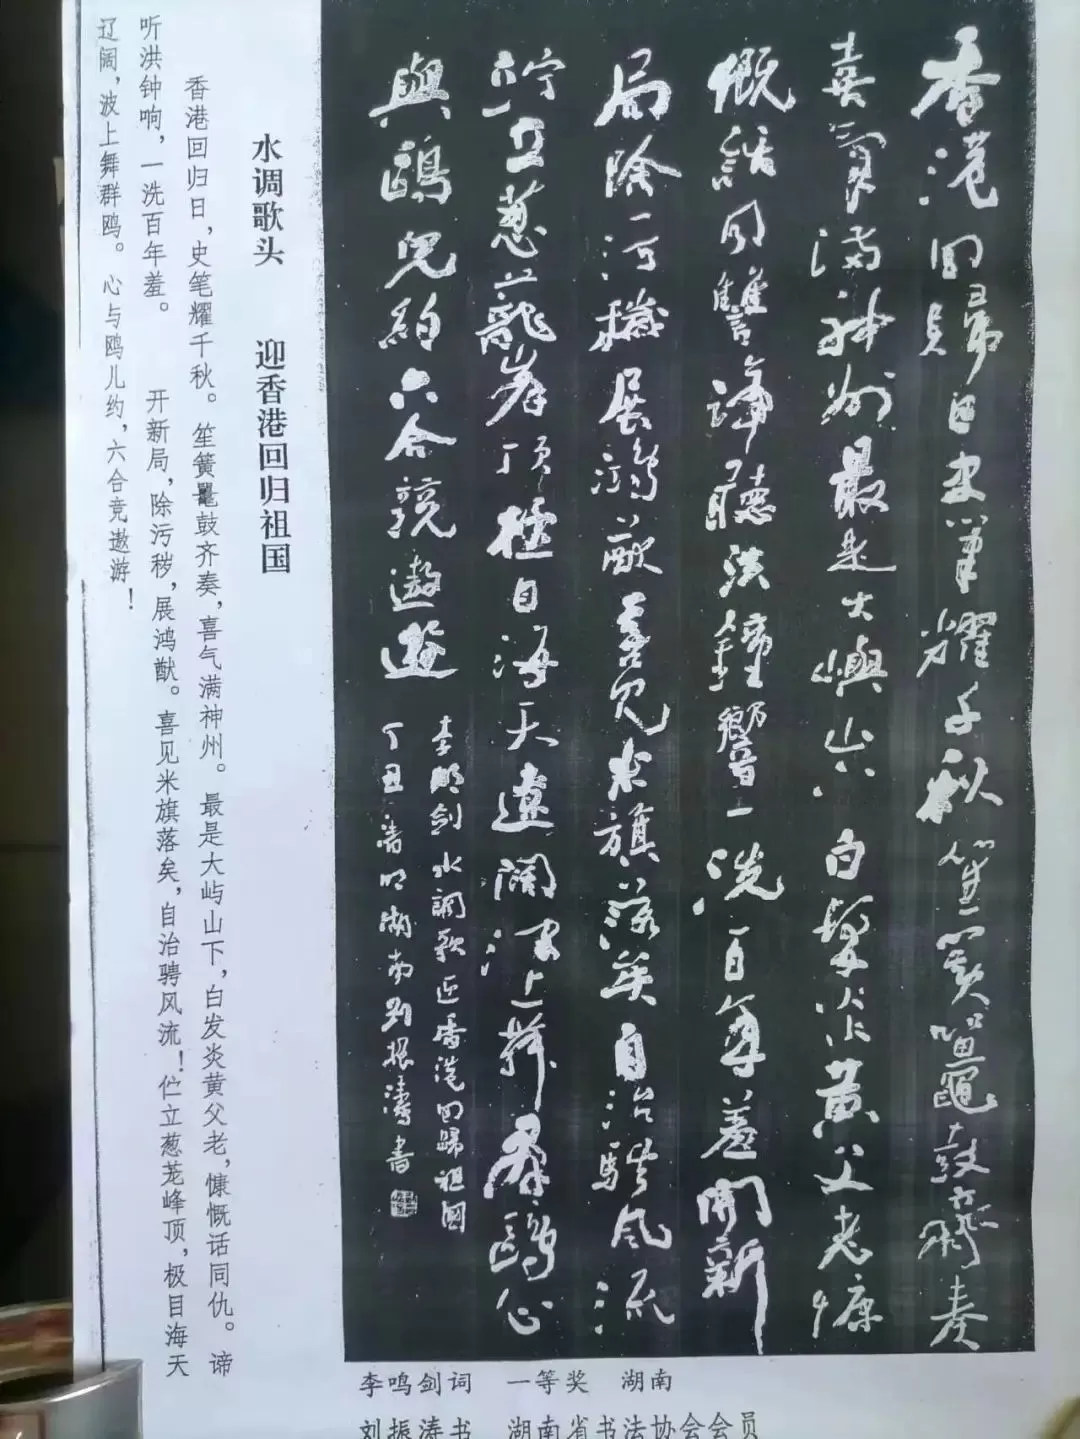 香港回歸日史筆耀千秋笙簧鼉鼓齊奏
喜氣滿神州最是大嶼山下白髮炎黃父老慷
慨話同讐諦聽洪鐘響一洗百年羞開新
局除污穢展鴻猷喜見米旗落矣自治騁風流
佇立蔥蘢峯頂極目海天遼闊波上舞群鷗心
與鷗兒約六合競遨遊
李鳴劍水調歌迎香港回歸祖國
丁丑 湖南劉振濤書
水调歌头 迎香港回归祖国
香港回归日，史笔耀千秋。笙簧鼍鼓齐奏，喜气满神州。最是大屿山下，白发炎黄父老，慷慨话同仇。谛
听洪钟响，一洗百年羞。 开新局，除污秽，展鸿猷。喜见米旗落矣，自治骋风流！伫立葱茏峰顶，极目海天
辽阔，波上舞群鸥。心与鸥儿约，六合竞遨游！
李鸣剑词 一等奖 湖南
刘振涛书 湖南省书法协会会员